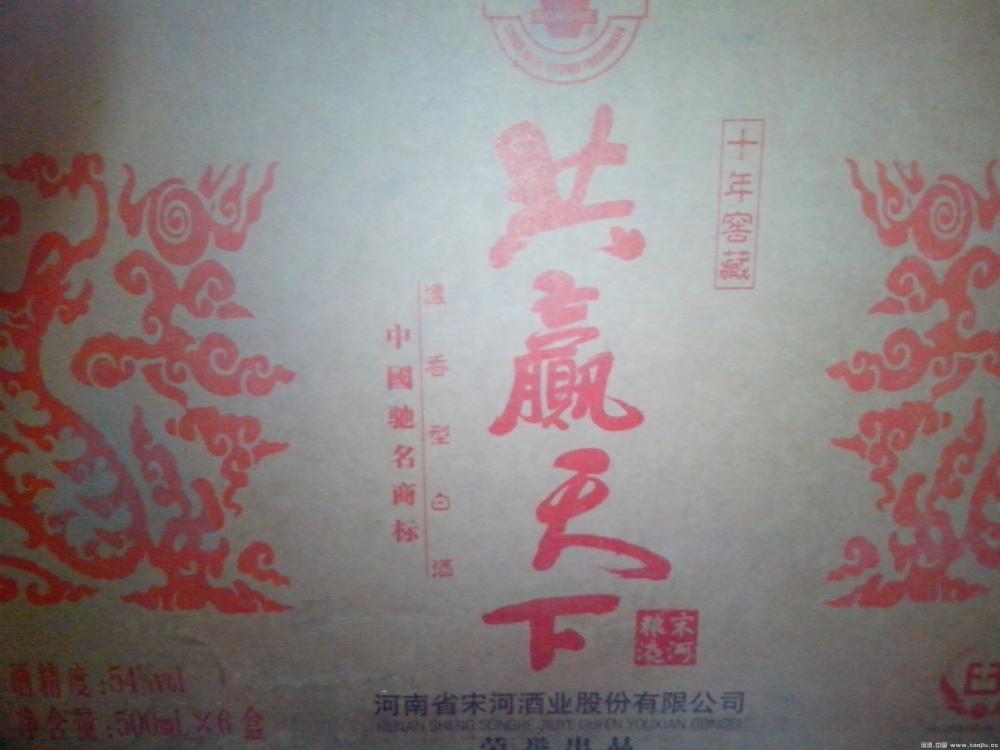 SONGHE
十年窖藏
共赢天下
宋河
粮液
濃香型白酒
中國驰名商标
酒精度:54%vol
净含量:500mL×6盒
河南省宋河酒业股份有限公司
HENAN SHENG SONGHE JIUYE GUFEN YOUXIAN GONGSI
荣誉出品